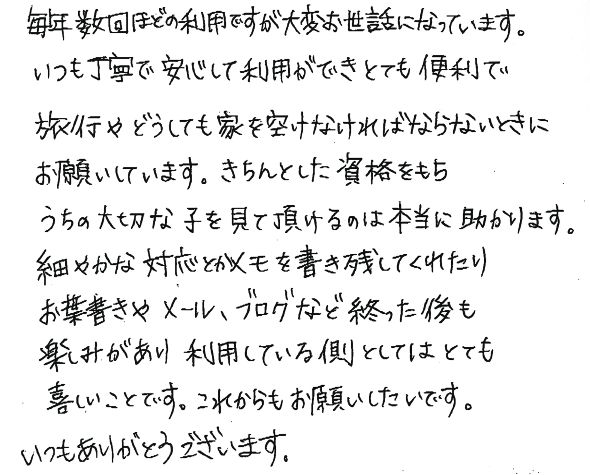 毎年数回ほどの利用ですが大変お世話になっています。
いつも丁寧で安心して利用ができとても便利で
旅行やどうしても家を空けなければならないときに
お願いしています。きちんとした資格をもち
うちの大切な子を見て頂けるのは本当に助かります。
細やかな対応とかメモを書き残してくれたり
お葉書きやメール、ブログなど終った後も
楽しみがあり利用している側としてはとても
喜しいことです。これからもお願いしたいです。
いつもありがとうございます。